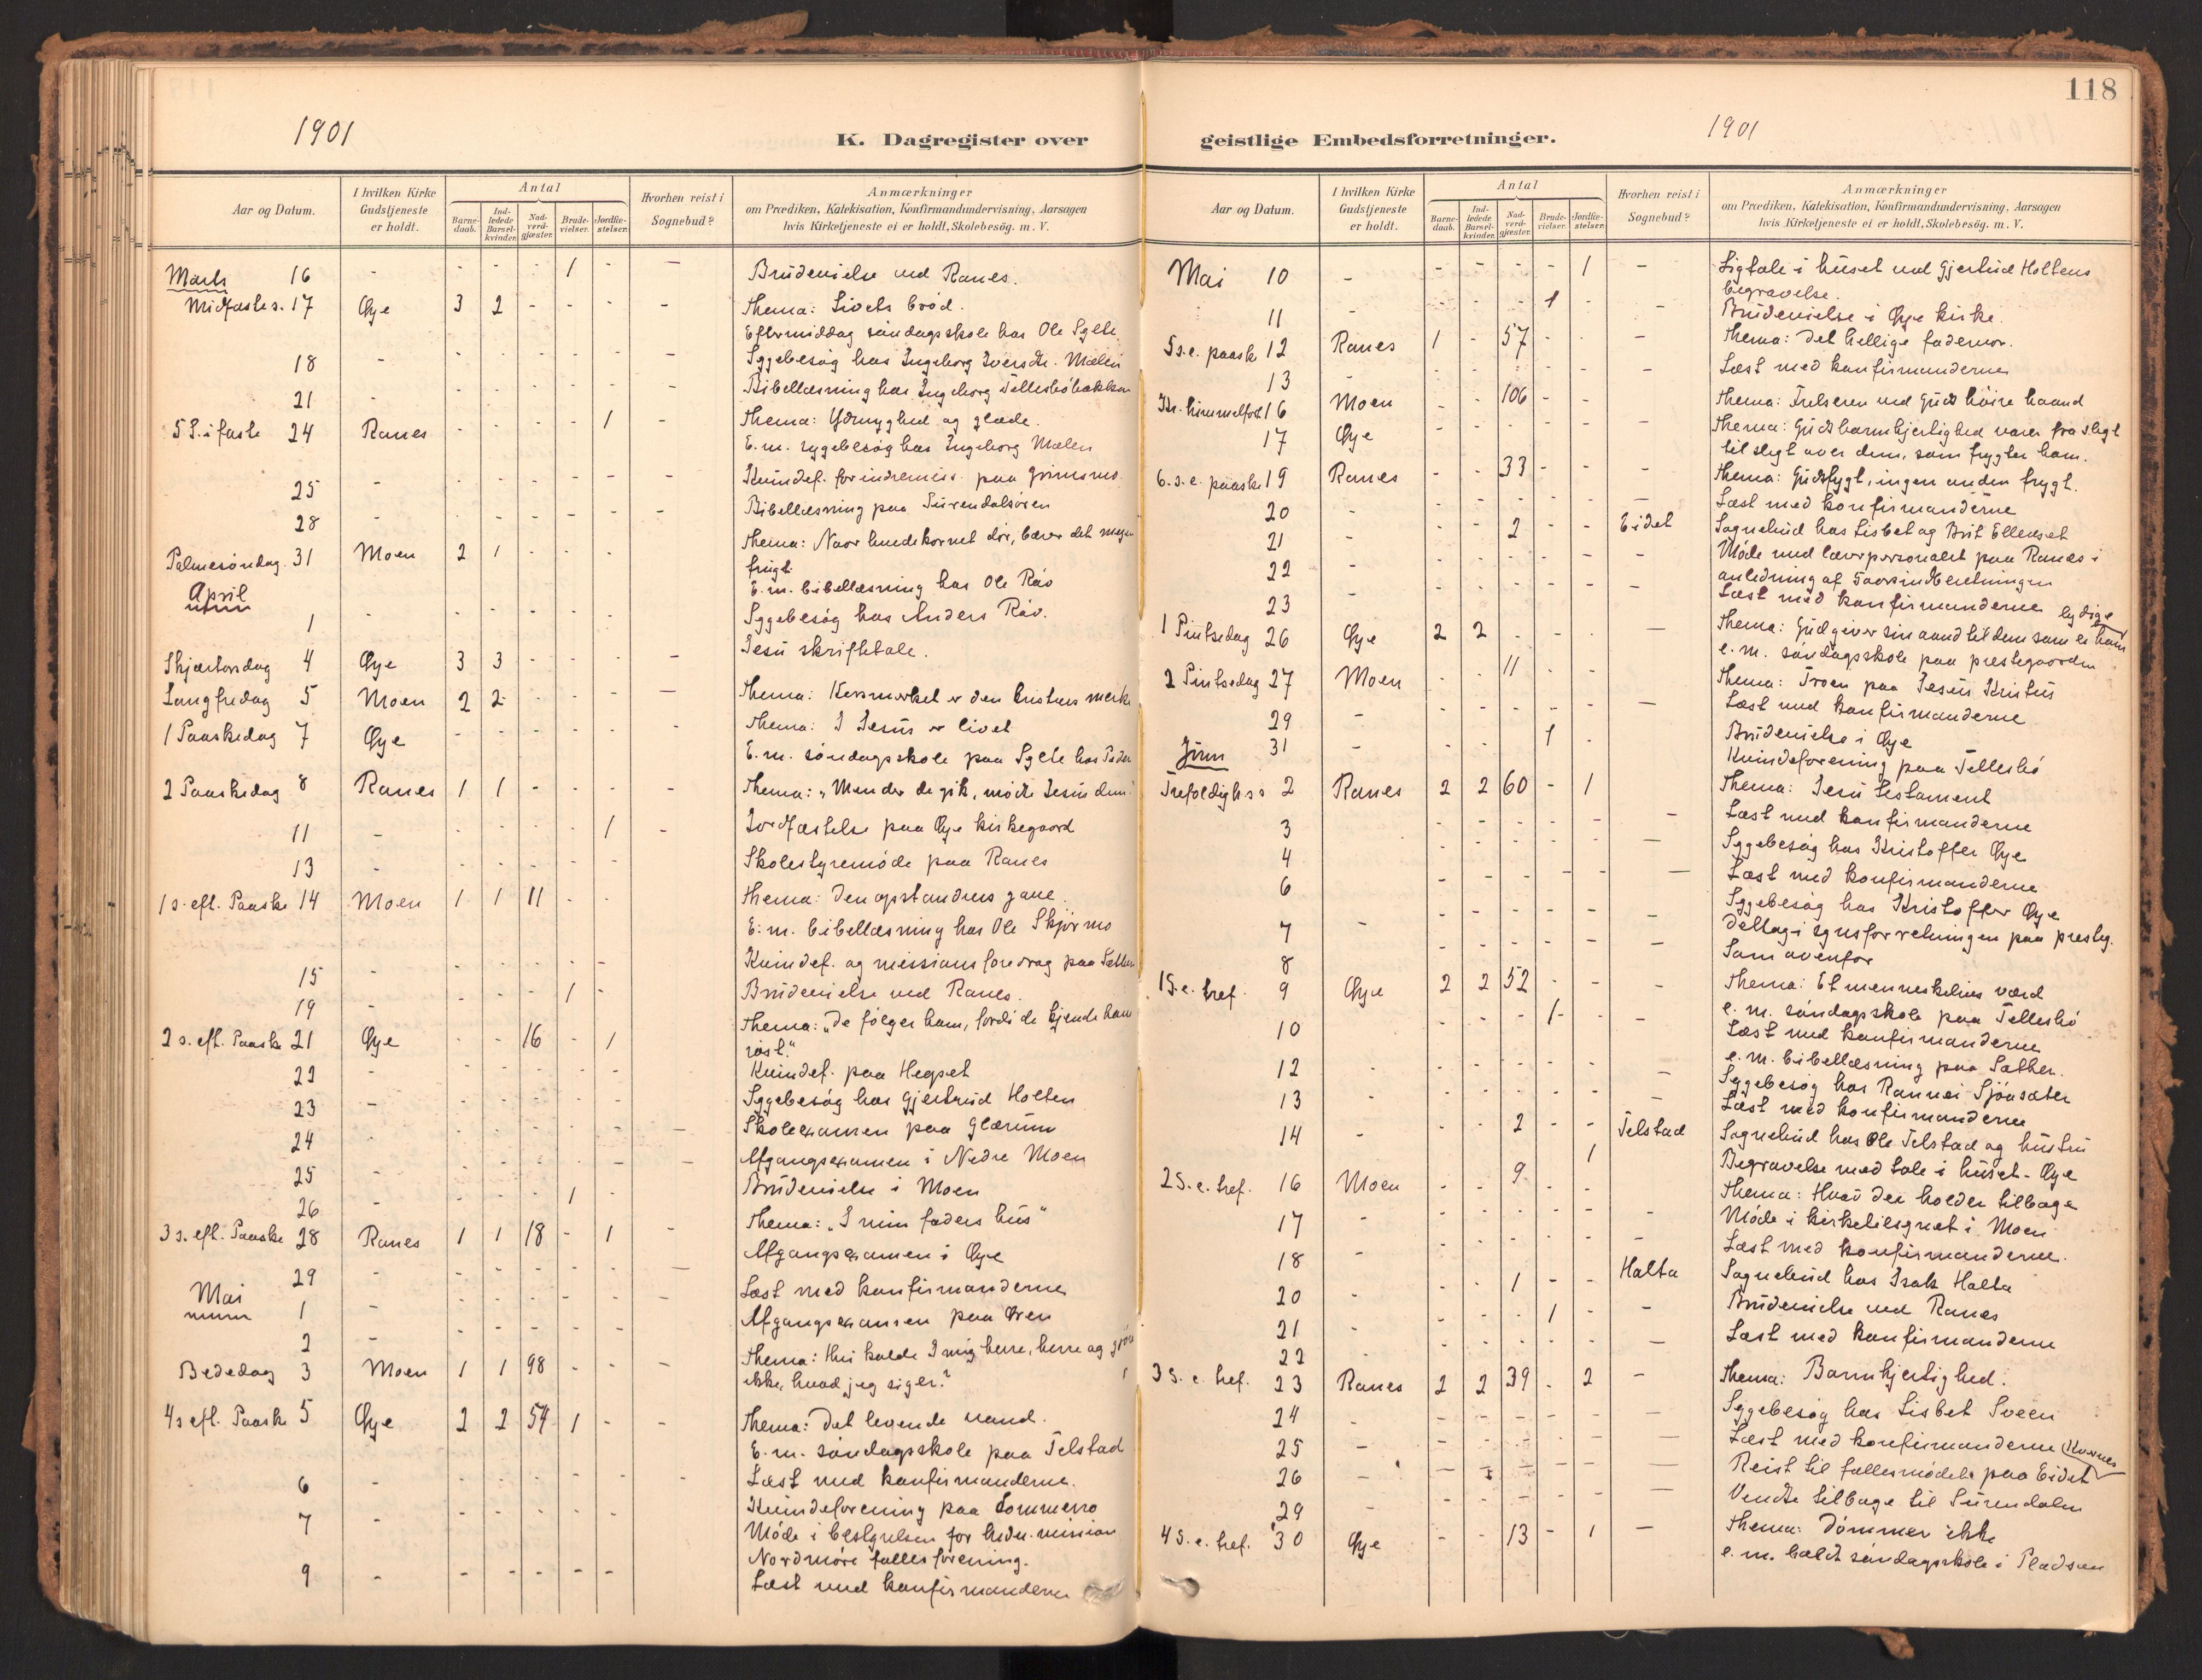 118
1901
K. Dagregister over
Aar og Datum.
I hvilken Kirke Gudstjeneste er holdt.
Antal
Barne-daab.
Ind-ledede Barsel-kvinder.
Nad-verd-gjæster.
Brude-vielser.
Jordfæ-stelser.
Hvorhen reist i Sognebud?
Anmærkninger
om Prædiken, Katekisation, Konfirmandundervisning, Aarsagen
hvis Kirketjeneste ei er holdt, Skolebesög. m. V.
Marts 16 - - - - 1 - - Brudevielse ved Ranes.
Midfastes. 17 Øye 3 2 - - - - Thema: Livets brød.
Eftermiddag søndagsskole hos Ole Sylte
18 - - - - - - - Sygebesøg hos Ingeborg Iversdt. Mælen
21 - - - - - - - Bibellæsning hos Ingeborg Telleshøbakken
5 S. i faste 24 Ranes - - - - 1 - Thema: Ydmyghed og glæde.
E.m. sygebesøg hos Ingeborg Mælen
25 - - - - - - - Kvindef. for indremiss. paa Grimsmo.
28 - - - - - - - Bibellæsning paa Surendalsøren
Palmesøndag 31 Moen 2 1 - - - Thema: Naar hvedekornet dør, bærer det megen
frugt.
E.m. bibellæsning hos Ole Røv
April
1 - - - - - - Sygebesøg hos Anders Røv.
Skjærtorsdag 4 Øye 3 3 - - - - Jesu skriftetale.
Langfredag 5 Moen 2 2 - - - - Thema: Korsmerket er den kristnes merke
1 Paaskedag 7 Øye - - - - - - Thema: I Jesus er livet
E.m. søndagsskole paa Sylte hos Peder
2 Paaskedag 8 Ranes 1 1 - - - - Thema: „Men der de gik, mødte Jesus dem"
11 - - - - - 1 - Jordfæstelse paa Øye kirkegaard
13 - - - - - - Skolestyremøde paa Ranes
1 s. eft. Paaske 14 Moen 1 1 11 - - Thema: Den opstandnes gave.
E.m. bibellæsning hos Ole Skjørmo
15 - - - - - - Kvindef. og missionsforedrag paa Sæther
19 - - - - 1 - Brudevielse ved Ranes.
2 s. eft. Paaske 21 Øye - - 16 - 1 Thema: „De følger ham, fordi de kjende hans
røst."
22 - - - - - - Kvindef. paa Hegset
23 - - - - - - Sygebesøg hos Gjertrud Holten
24 - - - - - - - Skoleexamen paa Glærum
25 - - - - - - - Afgangsexamen i Nedre Moen
26 - - - - 1 - Brudevielse i Moen
3 s. eft. Paaske 28 Ranes 1 1 18 - 1 - Thema: „I min faders hus"
29 - - - - - - - Afgangsexamen i Øye
Mai
1 - - - - - - - Læst med konfirmanderne
2 - - - - - - Afgangsexamen paa Øren
Bededag 3 Moen 1 1 98 - - - Thema: Hvi kalde I mig herre, herre og gjøre
ikke, hvad jeg siger?
4 s eft. Paaske 5 Øye 2 2 54 1 - - Thema: Det levende vand.
E.m. søndagsskole paa Telstad
6 - - - - - - - Læst med konfirmanderne.
7 - - - - - - - Kvindeforening paa Sommerro
Møde i bestyrelsen for hedn. mission
Nordmøre fællesforening.
9 - - - - - - Læst med konfirmanderne
1901
geistlige Embedsforretninger.
Aar og Datum.
I hvilken Kirke Gudstjeneste er holdt.
Antal
Barne-daab.
Ind-ledede Barsel-kvinder.
Nad-verd-gjæster.
Brude-vielser.
Jordfæ-stelser.
Hvorhen reist i Sognebud?
Anmærkninger
om Prædiken, Katekisation, Konfirmandundervisning, Aarsagen
hvis Kirketjeneste ei er holdt, Skolebesög. m. V.
Mai 10 - - - - - 1 - Ligtale i huset ved Gjertrud Holtens
begravelse.
11 - - - - 1 - - Brudevielse i Øye kirke.
5 s.e. paaske 12 Ranes 1 - 57 - - - Thema: Det hellige fadervor.
13 - - - - - - - Læst med konfirmanderne
Kr. himmelfart 16 Moen - - 106 - - - Thema: Frelseren ved Guds høire haand
17 Øye - - - - - - Thema: Guds barmhjertighed varer fra slegt
til slegt over dem, som frygter ham.
6. s. e. paaske 19 Ranes - - 33 - - - Thema: Gudsfrygt, ingen anden frygt.
20 - - - - - - Læst med konfirmanderne
21 - - - 2 - - Eidet Sognebud hos Lisbet og Brit Ellevset
22 - - - - - - - Møde med lærerpersonalet paa Ranes i
anledning af aarsindberetningen
23 - - - - - - - Læst med konfirmanderne
1 Pintsedag 26 Øye 2 2 - - - - Thema: Gud giver sin aand til dem som er ham lydige
e. m. søndagsskole paa prestegaarden
2 Pintsedag 27 Moen - - 11 - - Thema: Troen paa Jesus Kristus
29 - - - - - - - Læst med konfirmanderne
31 - - - - 1 - Brudevielse i Øye
Juni
Kvindeforening paa Telleshø
Trefoldighs 2 Ranes 2 2 60 - 1 Thema: Jesu testament
3 - - - - - - Læst med konfirmanderne
4 - - - - - - Sygebesøg hos Kristoffer Øye
6 - - - - - - Læst med konfirmanderne
Sygebesøg hos Kristoffer Øye
7 - - - - - - - Deltag i synsforretningen paa presteg.
8 - - - - - - Som ovenfor
1 S. e. tref. 9 Øye 2 2 52 - - - Thema: Et menneskelivs værd
e. m. søndagsskole paa Telleshø
10 - - - - 1 - Læst med konfirmanderne
e. m. bibellæsning paa Sæther.
12 - - - - - - - Sygebesøg hos Rannei Sjøasæter
13 - - - - - - - Læst med konfirmanderne
14 - - - 2 - - Telstad Sognebud hos Ole Telstad og hustru
1 Begravelse med tale i huset - Øye
2 S. e. tref. 16 Moen - - 9 - - Thema: Hvad der holder tilbage
17 - - - - - - Møde i kirketilsynet i Moen
18 - - - - - - - Læst med konfirmanderne.
20 - - - 1 - - Halta Sognebud hos Isak Halta
21 - - - - 1 - - Brudevielse ved Ranes
22 - - - - - - Læst med konfirmanderne
3 S. e. tref. 23 Ranes 2 2 39 - 2 - Thema: Barmhjertighed.
24 - - - - - - - Sygebesøg hos Lisbet Sveen
25 - - - - - - - Læst med konfirmanderne
26 - - - - - - - Reist til fællesmødet paa Eidet (Kvernes
29 - - - - - - - Vendte tilbage til Surendalen
4 S. e. tref. 30 Øye - - 13 - 1 - Thema: Dømmer ikke
e. m. holdt søndagsskole i Pladsen